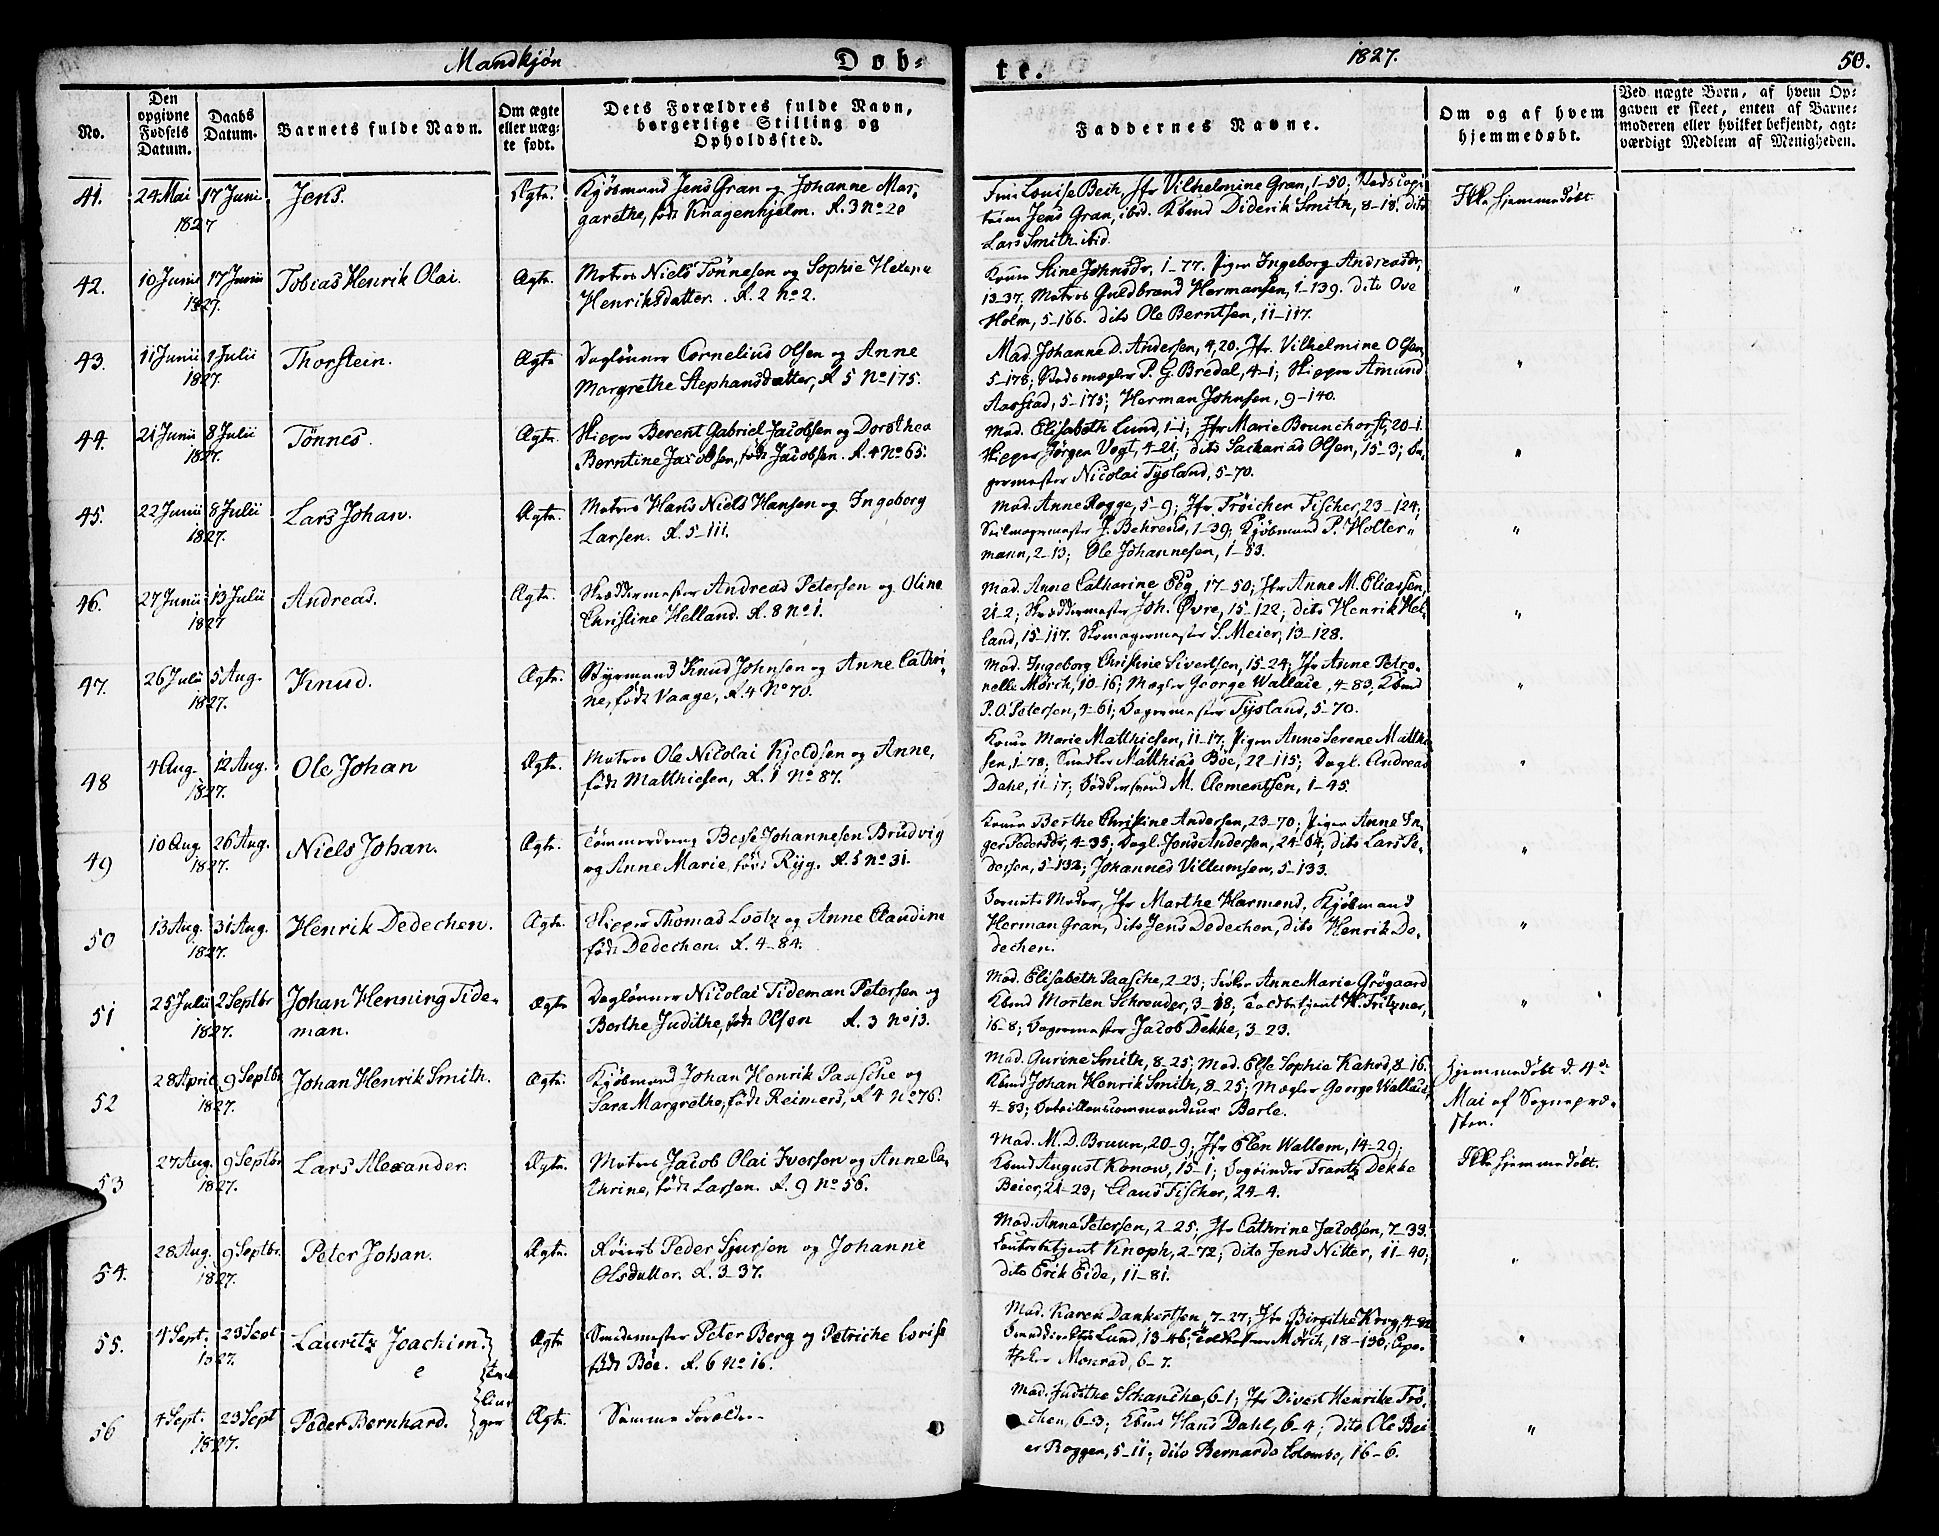 Mandkjøn
Døb-
te.
1827.
50.
No.
Den opgivne Fødsels Datum.
Daabs Datum.
Barnets fulde Navn.
Om ægte eller uægte født.
Dets Forældres fulde Navn, borgerlige Stilling og Opholdssted.
Faddernes Navne.
Om og af hvem hjemmedøbt.
Ved uægte Børn, af hvem Opgaven er skeet, enten af Barnemoderen eller hvilket bekjendt, agtværdigt Medlem af Menigheden.
41. 24 Mai 17 Juni 1827 Jens. Ægte.
Kjøbmand Jens Gran og Johanne Mar-
garethe, født Knagenhjelm. R. 3 No 20
Louise Beck, Jfr Vilhelmine Gran, 1-50;
Jens Gran, ibid. Kbmd Diderik Smith, 8-18. dito
Lars Smith ibid.
Ikke hjemmedøbt.
42. 10 Junii 17 Junii 1827. Tobias Henrik Olai. Ægte.
Matros Niels Tønnesen og Sophie Helene
Henriksdatter. R. 2 No 2.
Konen Stine Johnsdr, 1-77. Pigen Ingeborg Andreasdr,
13-37, Matros Guldbrand Hermansen, 1-139. dito Ove
Holm, 5-166. dito Ole Berntsen, 11-117.
"
43. 11 Junii 1 Julii 1827. Thorstein. Ægte
Daglønner Cornelius Olsen og Anne
Margrethe Stephansdatter, R 5 No 175.
Mad. Johanne D. Andersen, 4,20. Jfr. Vilhelmine Olsen,
5-178; P. G. Bredal, 4-1; Skipper Amund
Aarstad, 5-175; Herman Johnsen, 9-140.
"
44. 21 Junii 8 Julii 1827. Tønnes. Ægte.
Skipper Berent Gabriel Jacobsen og Dorothea
Berntine Jacobsen, født Jacobsen. R. 4 No 65.
Mad. Elisabeth Lund, 1-1; Jfr Marie Brunchorst, 20-1.
Skipper Jørgen Vogt, 4-21; dito Sachariad Olsen, 15-3; Ba-
germester Nicolai Tysland, 5-70.
"
45. 22 Junii 8 Julii 1827. Lars Johan. Ægte.
Matros Hans Niels Hansen og Ingeborg
Larsen. R. 5-111.
Mad. Anne Rogge, 5-9; Jfr. Trøichen Fischer, 23-124;
Seilmagermester J. Behrens, 1-39; Kjøbmand P. Holter-
mann, 2-13; Ole Johannesen, 1-53.
"
46. 27 Junii 13 Julii 1827 Andreas. Ægte.
Skræddermester Andreas Petersen og Oline
Christine Helland. R. 8 No 1.
Mad. Anne Catharine Eeg, 17-50; Jfr Anne M. Eliassen,
21-2; Skræddermester Joh. Øvre, 15-122; dito Henrik Hel-
land, 15-117. Skomagermester S. Meier, 13-128.
"
47. 26 Julii 5 Aug. 1827. Knud. Ægte.
Styrmand Knud Johnsen og Anne Cathri-
ne, født Vaage, R. 4 No 70.
Mad. Ingeborg Christine Sivertsen, 15-24; Jfr Anne Petro-
nelle Mørch, 10-16; Mægler George Wallace, 4-83, Kbmd
P. O. Petersen, 4-61; Bagermester Tysland, 5-70.
"
48 4 Aug. 12 Aug. 1827. Ole Johan Ægte.
Matros Ole Nicolai Kjeldsen og Anne,
født Matthiesen, R. 1 No 87.
Konen Marie Matthiesen, 11-17, Pigen Anne Serene Matthi-
sen, 1-78; Snedker Matthias Bøe, 22-115; Dagl. Andreas
Dahl, 11-17; Bødkersvend M. Clementsen, 1-45.
"
49 10 Aug 26 Aug. 1827. Niels Johan. Ægte.
Tømmerdreng Bese Johannesen Brudvig
og Anne Marie, født Ryg. R. 5 No 31.
Konen Berthe Christine Andersen, 23-70; Pigen Anne In-
ger Pedersdr, 4-35; Dagl. Jonas Andersen, 24-64, dito Lars Pe-
dersen, 5-132; Johannes Villumsen, 5-133.
"
50 13 Aug. 31 Aug. 1827. Henrik Dedechen. Ægte.
Skipper Thomas Lootz og Anne Claudine
født Dedechen. R. 4-84.
Barnets Moder, Jfr Marthe Harmens, Kjøbmand
Herman Gran, dito Jens Dedechen, dito Henrik De-
dechen.
"
51 25 Julii 2 Septbr 1827. Johan Henning Tide-
man. Ægte
Daglønner Nicolai Tideman Petersen og
Berthe Judithe, født Olsen R. 3 No 13.
Mad. Elisabeth Paasche, 2-23; Anne Marie Grøgaard
Kbmd Morten Schreuder, 3-18; Toldbetjent H. Fritzner,
16-8; Bagermester Jacob Dekke, 3-23.
"
52 28 April 9 Septbr 1827. Johan Henrik Smith. Ægte.
Kjøbmand Johan Henrik Paasche og
Sara Margrethe, født Reimers, R. 4 No 76.
Mad. Gurine Smith, 8-25; Mad. Else Sophie Kahrs, 8-16.
Kbmd Johan Henrik Smith, 8-25; Mægler George Wallace,
4-83; Berle.
Hjemmedøbt d. 4de
Mai af Sognepræ-
sten.
53 27 Aug. 9 Septbr 1827. Lars Alexander. Ægte.
Matros Jacob Olai Iversen og Anne Ca-
thrine, født Larsen. R. 9 No 56.
Mad. M. D. Bruun, 20-9; Jfr Elen Wallem, 14-29;
Kbmd August Konow, 15-1; Frantz Dekke
Beier, 21-23; Claus Fischer, 24-4.
Ikke hjemmedøbt.
54. 28 Aug. 9 Septbr. 1827. Peter Johan. Ægte.
Peder Sjursen og Johanne
Olsdatter. R. 3-37.
Mad. Anna Petersen, 2-25; Jfr Cathrine Jacobsen, 7-33.
Contorbetjent Knoph, 2-72; dito Jens Nitter, 11-40;
dito Erik Eide, 11-81.
"
55. 4 Sept. 23 Sept 1827. Lauritz Joachim. Ægte
Smedemester Peter Berg og Petriche Lovise
født Bøe. R. 6 No 16.
Mad. Karen Dankertsen, 7-27; Jfr Birgithe Korg, 4-82
Lund, 13-46; Mørch, 18-130; Apo-
theker Monrad, 6-7.
"
e
Tvil
linger
56 4 Sept. 23 Sept 1827. Peder Bernhard. Ægte.
Samme Forældre
Mad. Judithe Schanche, 6-1; Jfr Divert Henrike Trø-
chen, 6-3; Kbmd Hans Dahl, 6-4; dito Ole Bei-
er Roggen, 5-11; dito Bernardo Colombo, 16-6.
"